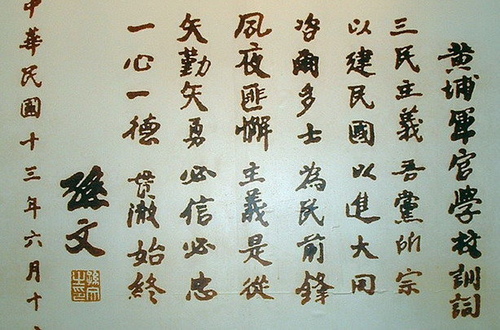 黃埔軍官學校訓詞
三民主義吾黨所宗
以建民國以進大同
咨爾多士為民前鋒
夙夜匪懈主義是從
矢勤矢勇必信必忠
一心一德貫澈始終
孫文
中華民國十三年六月十